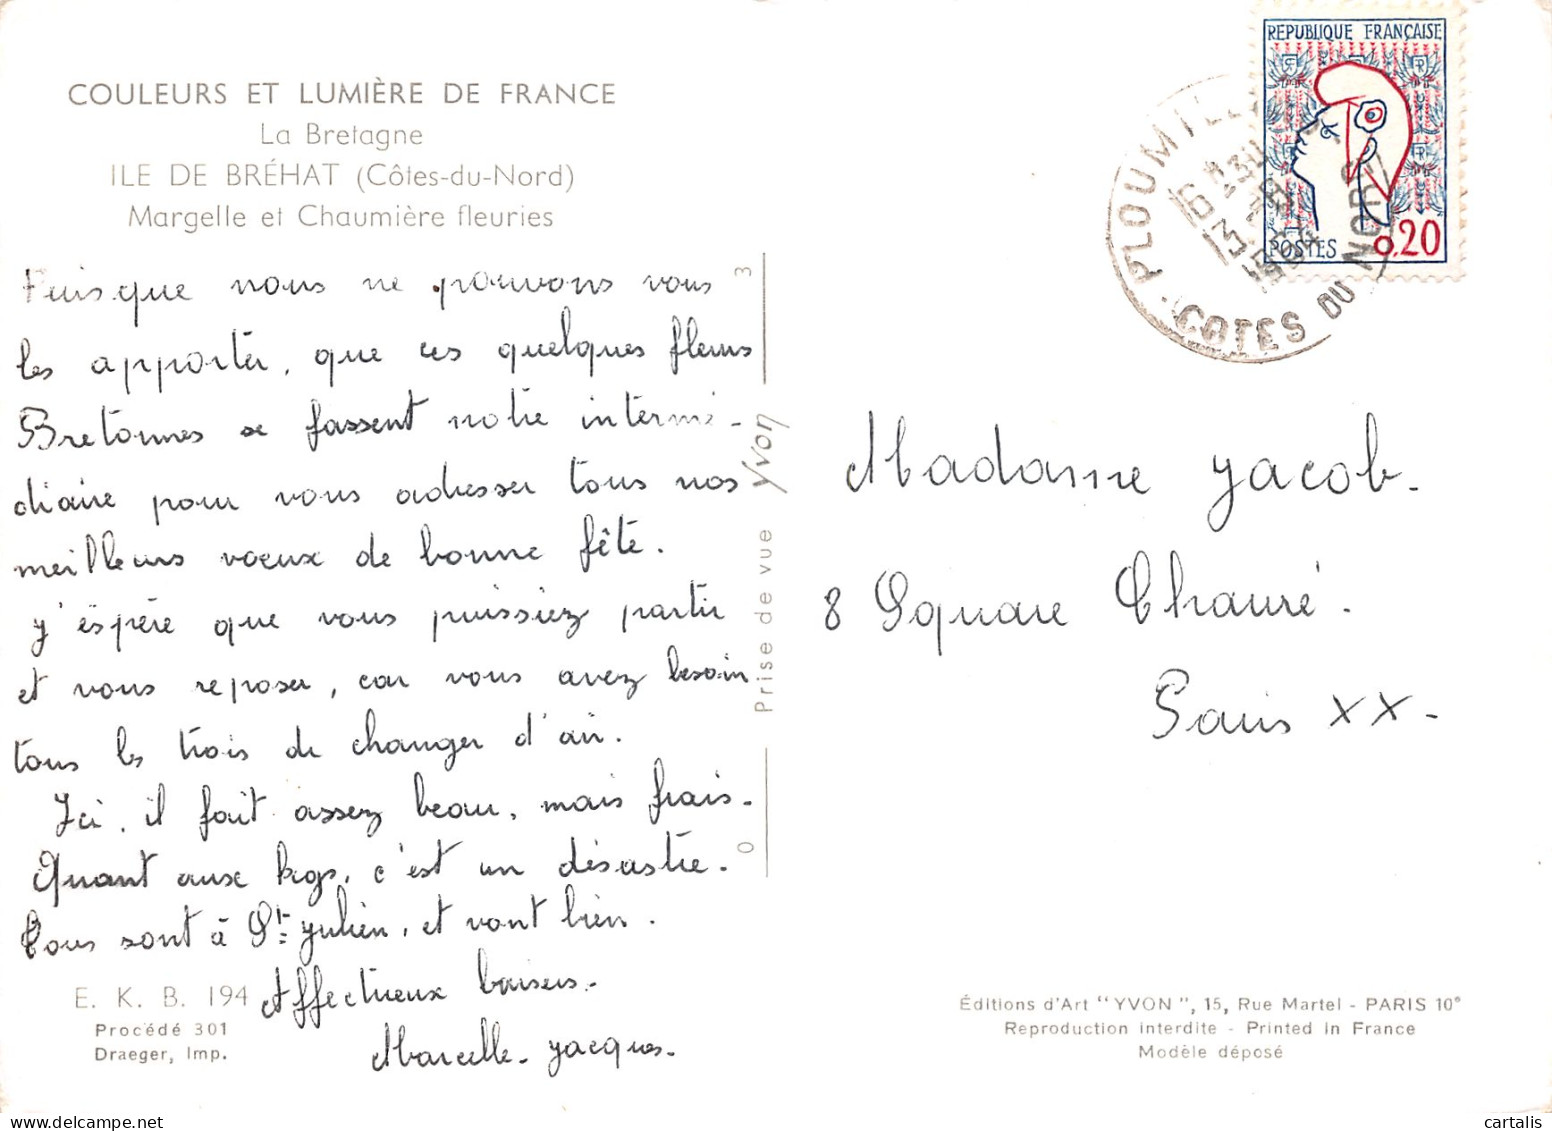 COULEURS ET LUMIÈRE DE FRANCE
La Bretagne
ILE DE BRÉHAT (Côtes-du-Nord)
Margelle et Chaumière fleuries
Puisque nous ne pouvons vous
les apporter, que ces quelques fleurs
Bretonnes se fassent notre intermé-
diaire pour vous adresser tous nos
meilleurs voeux de bonne fête.
J'éspère que vous puissiez partir
et vous reposer, car vous avez besoin
tous les trois de changer d'air.
Ici, il fait assez beau, mais frais.
Quant aux
, c'est un désastre.
Tous sont à St Julien, et vont bien.
Affectueux baisers.
Marcelle - Jacques.
E. K. B. 194
Procédé 301
Draeger, Imp.
3
Yvon
Prise de vue
0
REPUBLIQUE FRANÇAISE
POSTES 0,20
PLOUMILL
COTES DU NORD
16 H 30
13 - 8
1964
Madame Jacob.
8 Square Chauré.
Paris XX.
Éditions d'Art "YVON", 15, Rue Martel - PARIS 10e
Reproduction interdite - Printed in France
Modèle déposé
delcampe.net
cartalis